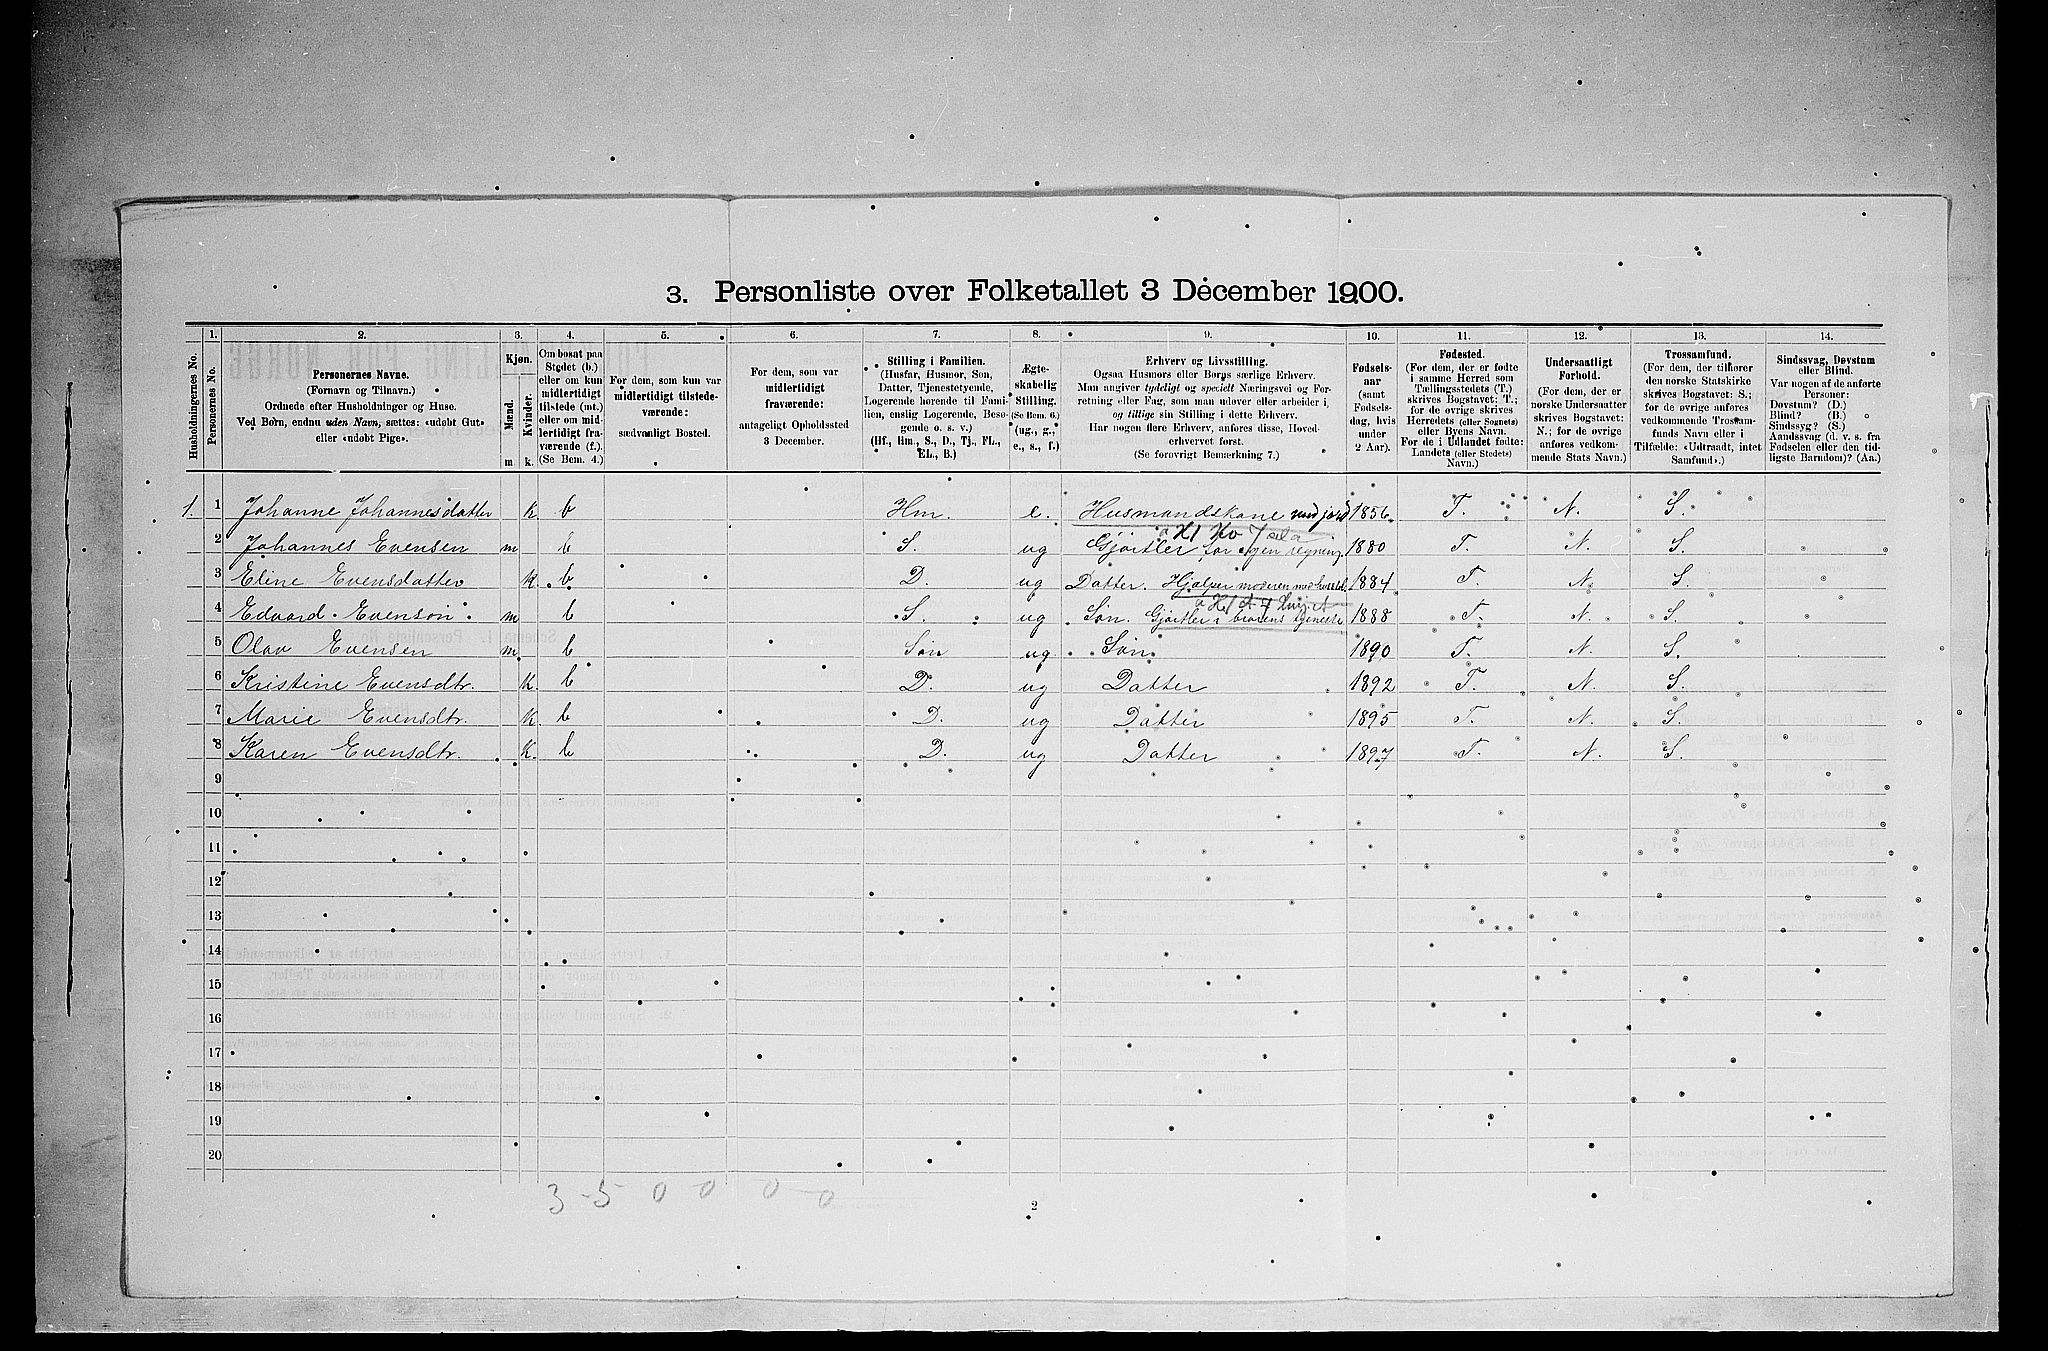 3. Personliste over Folketallet 3 December 1900.
1. 2. 3. 4. 5. 6. 7. 8. 9. 10. 11. 12. 13. 14.
Husholdningernes No.
Personernes No.
Personernes Navne.
(Fornavn og Tilnavn.)
Ordnede efter Husholdninger og Huse.
Ved Børn, endnu uden Navn, sættes: «udøbt Gut»
eller «udøbt Pige».
Kjøn.
Mænd.
Kvinder.
m. k.
Om bosat paa
Stedet (b.)
eller om kun
midlertidigt
tilstede (mt.)
eller om mid-
lertidigt fra-
værende (f.).
(Se Bem. 4.)
For dem, som kun var
midlertidigt tilstede-
værende:
sædvanligt Bosted.
For dem, som var
midlertidigt
fraværende:
antageligt Opholdssted
3 December.
Stilling i Familien.
(Husfar, Husmor, Søn,
Datter, Tjenestetyende,
Logerende hørende til Fami-
lien, enslig Logerende, Besø-
gende o. s. v.)
(Hf., Hm., S., D., Tj., FL.,
EL., B.)
Ægte-
skabelig
Stilling.
(Se Bem. 6.)
(ug., g.,
e., s., f.)
Erhverv og Livsstilling.
Ogsaa Husmors eller Børgs særlige Erhverv.
Man angiver tydeligt og specielt Næringsvei og For-
retning eller Fag, som man udøver eller arbeider i,
og tillige sin Stilling i dette Erhverv.
Har nogen flere Erhverv, anføres disse, Hoved-
erhvervet først.
(Se forøvrigt Bemærkning 7.)
Fødsels-
aar
(samt
Fødsels-
dag, hvis
under
2 Aar).
Fødested.
(For dem, der er fødte
i samme Herred som
Tællingsstedets (T.)
skrives Bogstavet: T.;
for de øvrige skrives
Herredets (eller Sognets)
eller Byens Navn.
For de i Udlandet fødte:
Landets (eller Stedets)
Navn.)
Undersaatligt
Forhold.
(For dem, der er
norske Undersaatter
skrives Bogstavet:
N.; for de øvrige
anføres vedkom-
mende Stats Navn.)
Trossamfund.
(For dem, der tilhører
den norske Statskirke
skrives Bogstavet: S.;
for de øvrige anføres
vedkommende Trossam-
funds Navn eller i
Tilfælde: «Udtraadt, intet
Samfund».)
Sindssvag, Døvstum
eller Blind.
Var nogen af de anførte
Personer:
Døvstum? (D.)
Blind? (B.)
Sindssyg? (S.)
Aandssvag (d. v. s. fra
Fødselen eller den tid-
ligste Barndom)? (Aa.)
1. 1 Johanne Johannesdatter k b Hm. e. Husmandskone med jord 1856 T. N. S.
2 Johannes Evensen m b S. ug Gjørtler for egen regning. 1880 T. N. S.
3 Eline Evensdatter k. b D. ug Datter. Hjælper moderen 1884 T. N. S.
4 Edvard Evenson m b S. ug Søn. Gjørtler i broders tjeneste 1888 T. N. S.
5 Olav Evensen m b Søn ug Søn 1890 T. N. S.
6 Kristine Evensdtr. k. b D. ug Datter 1892 T. N. S.
7 Marie Evensdtr. k b D. ug Datter 1895 T. N. S.
8 Karen Evensdtr. k. b D. ug Datter 1897 T. N. S.
9
10
11
12
13
14
15
16
17
18
19
20
3 - 5 0 0 0 0
2